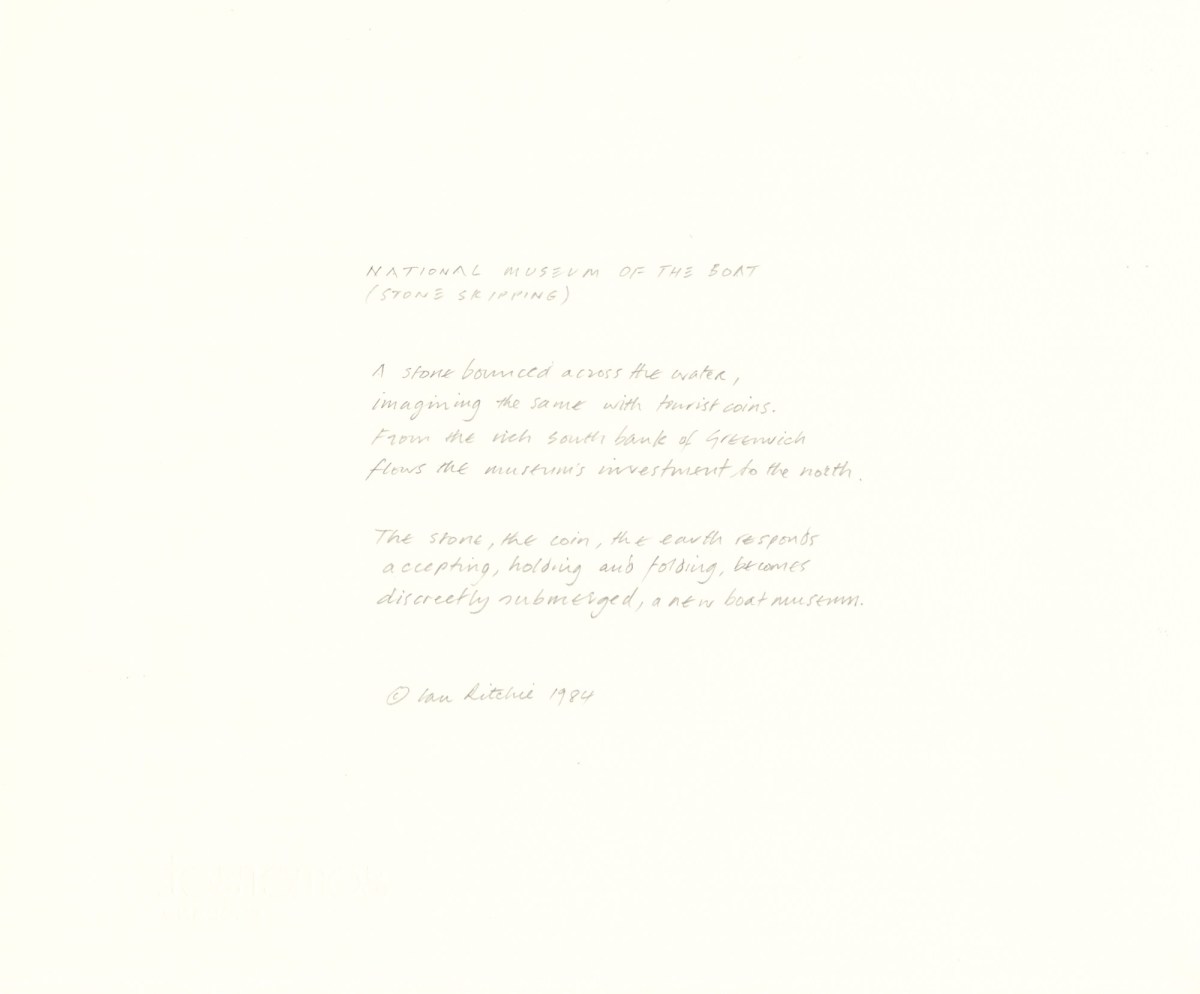 NATIONAL MUSEUM OF THE BOAT
(STONE SKIPPING)
A stone bounced across the water,
imagining the same with tourist coins.
From the rich south bank of Greenwich
flows the museum's investment to the north.
The stone, the coin, the earth responds
accepting, holding and folding, becomes
discreetly submerged, a new boat museum.
© Ian Ritchie 1984